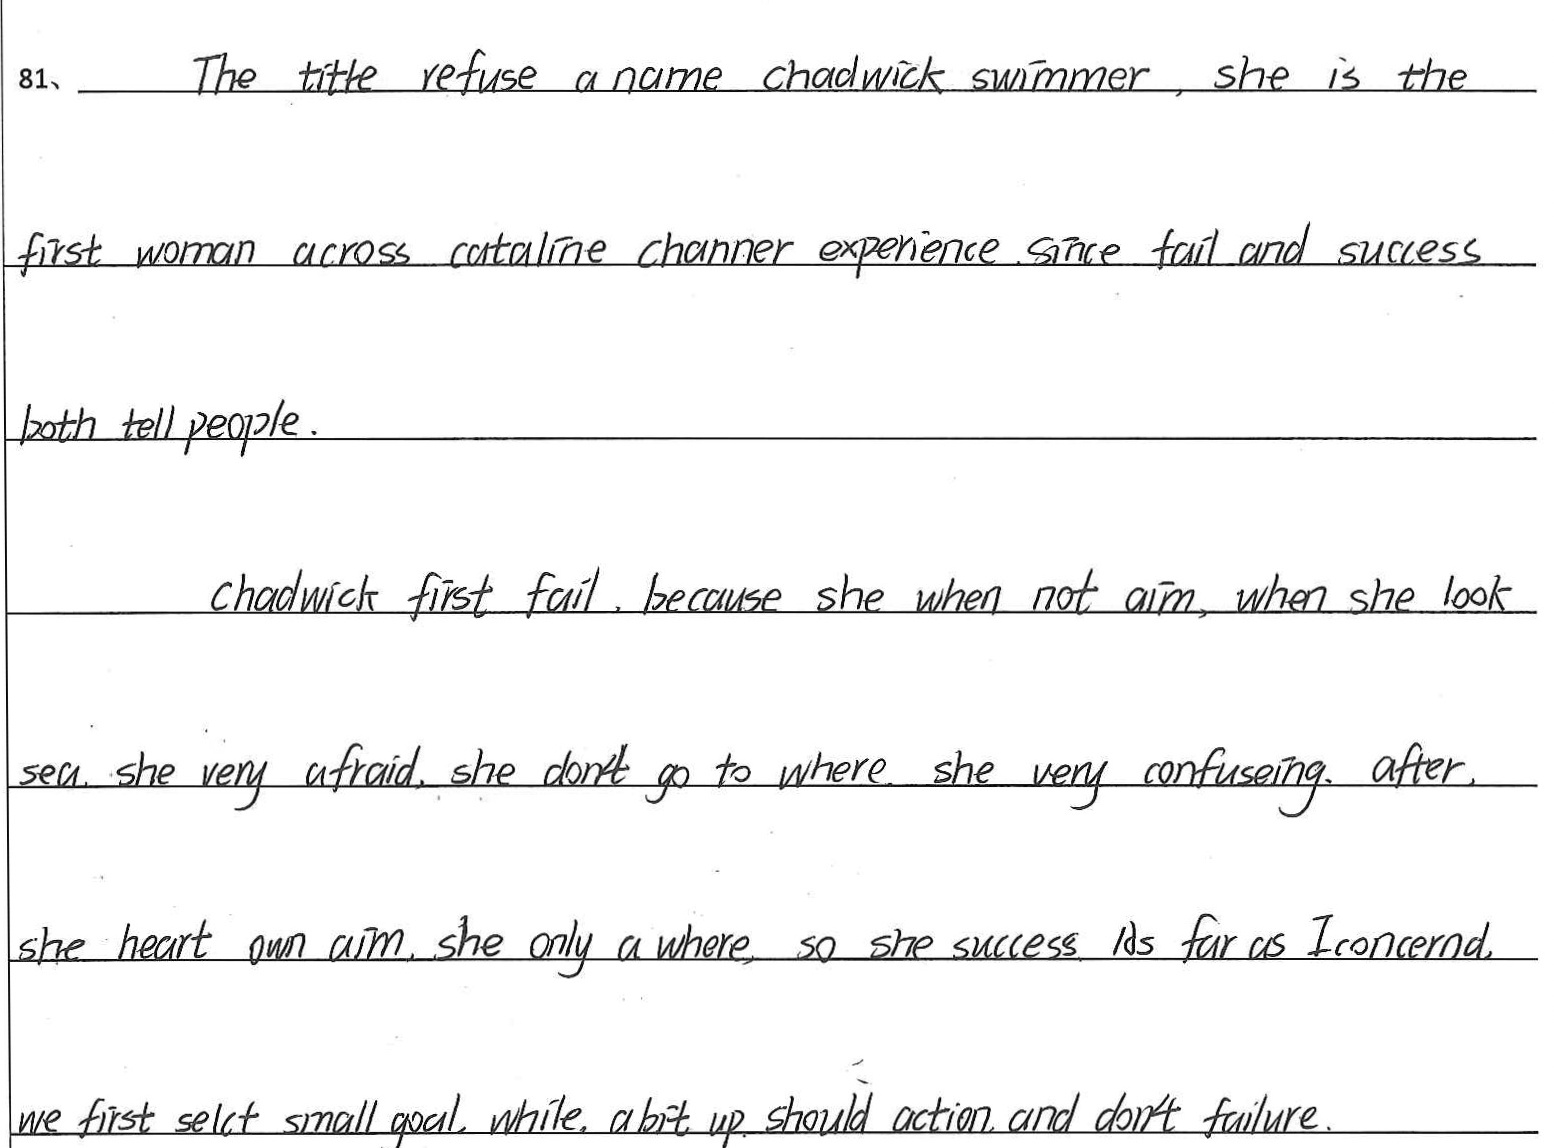 81、 The title refuse a name chadwick swimmer, she is the
first woman across cataline channer experience. since fail and success
both tell people.
chadwick first fail. because she when not aim, when she look
sea. she very afraid. she don't go to where. she very confuseing. after.
she heart own aim. she only a where, so she success. As far as I concernd.
we first selct small goal. while. a bit up. should action. and don't failure.